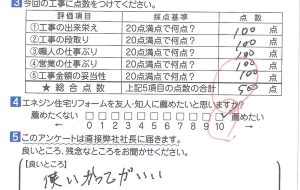 3 今回の工事に点数をつけてください。
評価項目 採点基準 点数
①工事の出来栄え 20点満点で何点? 100 点
②工事の段取り 20点満点で何点? 100 点
③職人の仕事ぶり 20点満点で何点? 100 点
④営業の仕事ぶり 20点満点で何点? 100 点
⑤工事金額の妥当性 20点満点で何点? 100 点
★総合点数 上記5項目の点数の合計 500 点
4 エネジン住宅リフォームを友人・知人に薦めたいと思いますか?
薦めたくない □ □ □ □ □ □ □ □ □ □ ☑ 薦めたい
0 1 2 3 4 5 6 7 8 9 10
5 このアンケートは直接弊社社長に届きます。
良いところ、残念なところをお聞かせください。
【良いところ】
使いかってがいい